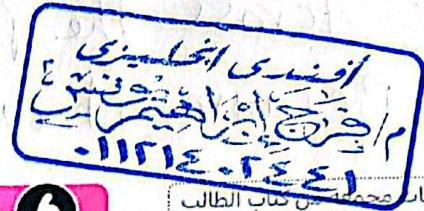 أفندى انجليزى
م/ فرج إبراهيم يونس
٠١١٢١٤٠٢٤٤١
مجمعة من كتاب الطالب